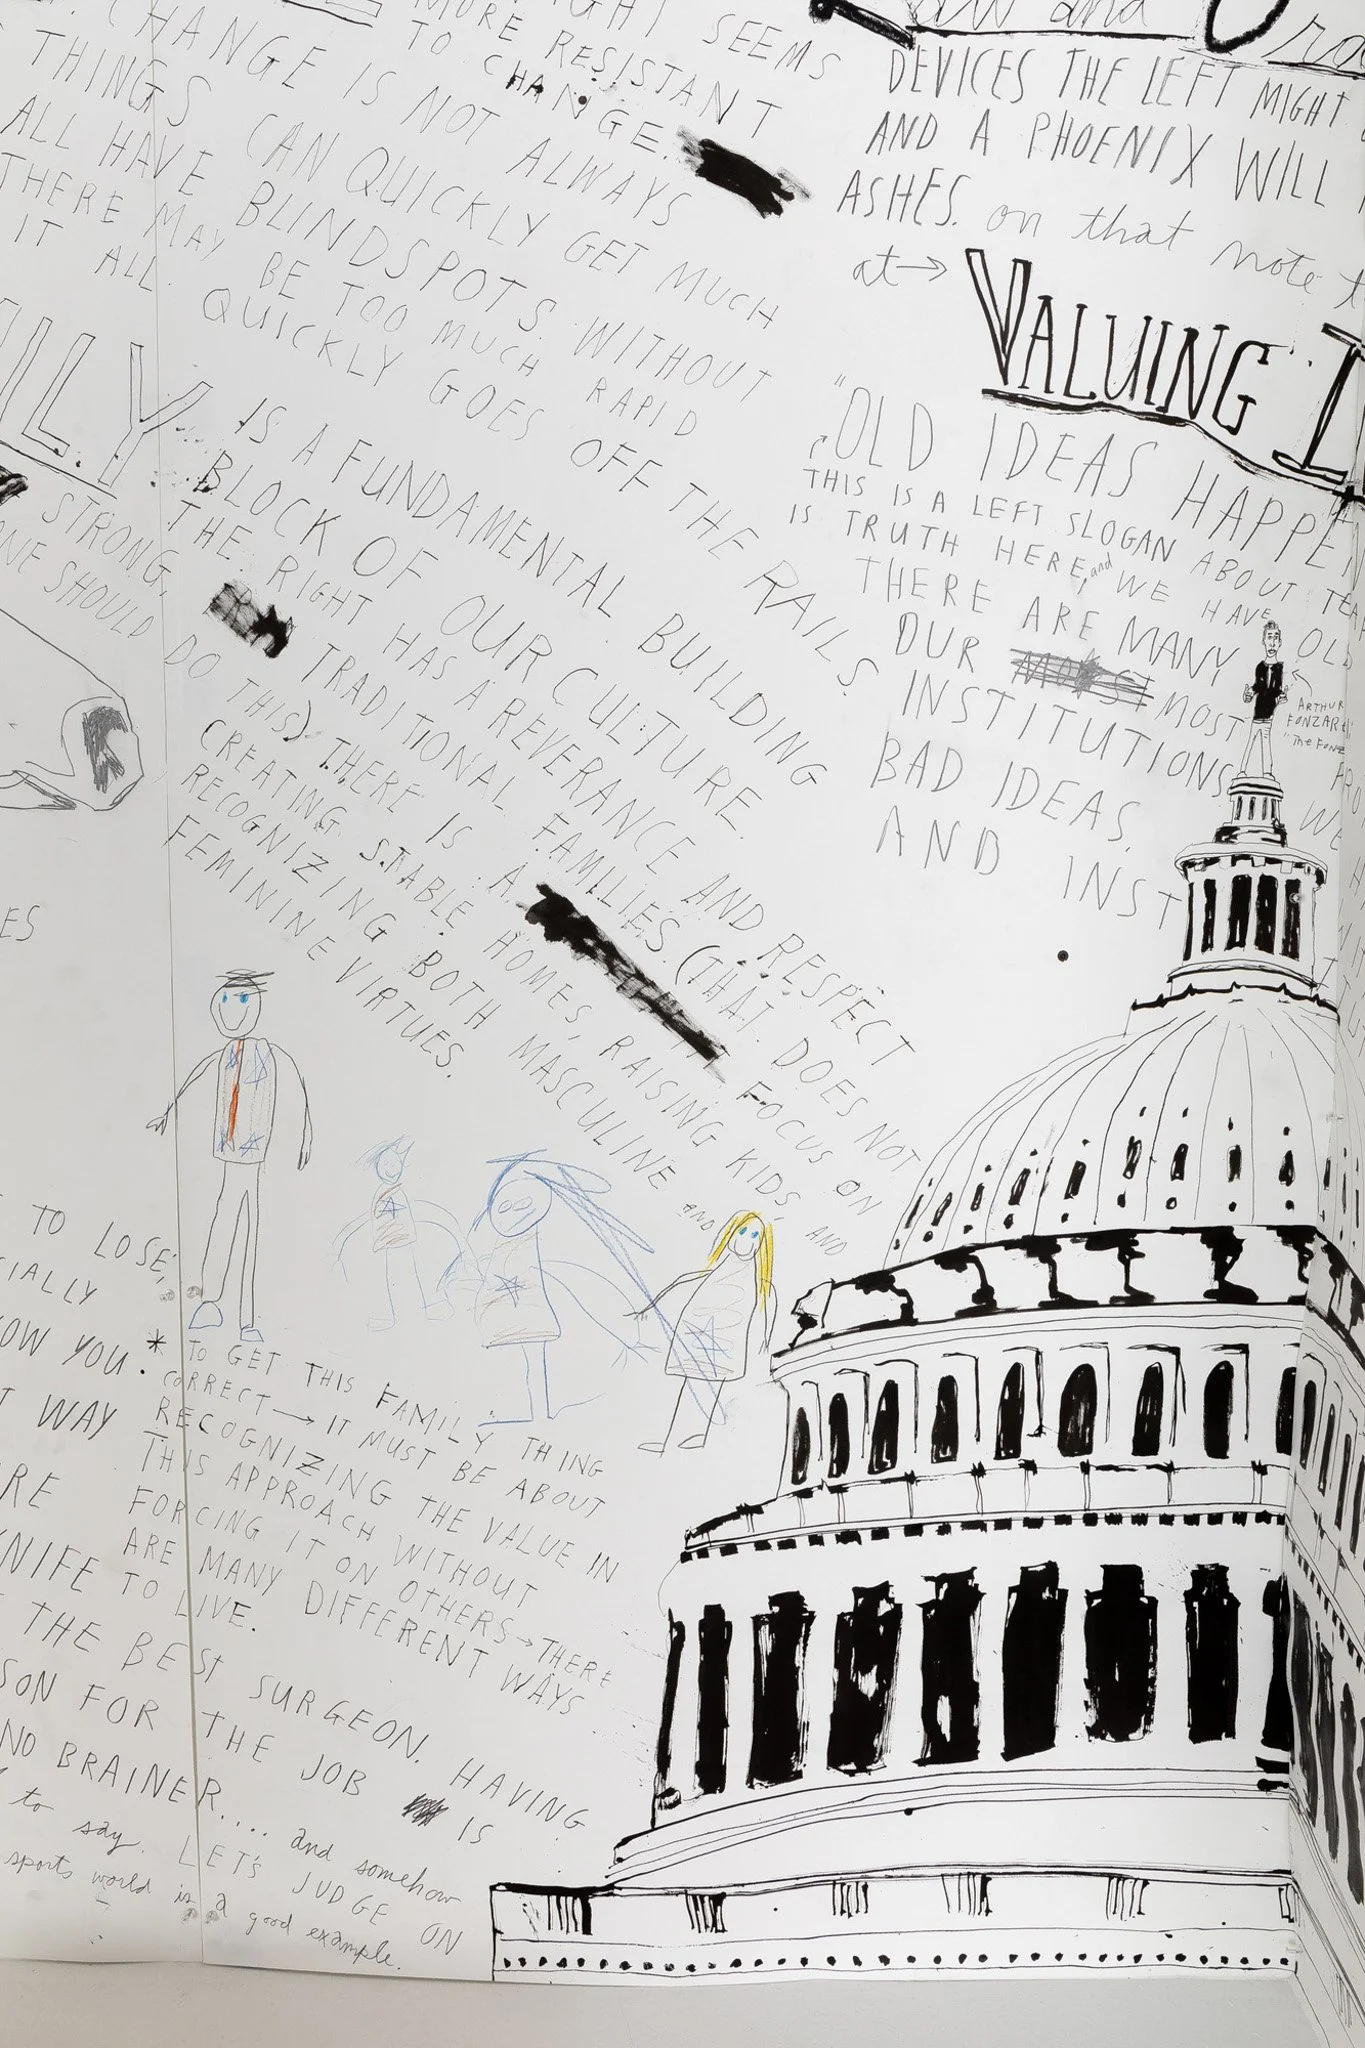 CHANGE IS NOT ALWAYS
THINGS CAN QUICKLY GET MUCH
ALL HAVE BLINDSPOTS. WITHOUT
THERE MAY BE TOO MUCH RAPID
IT ALL QUICKLY GOES OFF THE RAILS.
SEEMS
MORE RESISTANT
TO CHANGE.
IS A FUNDAMENTAL BUILDING
BLOCK OF OUR CULTURE.
THE RIGHT HAS A REVERANCE AND RESPECT
STRONG, TRADITIONAL FAMILIES. (THAT DOES NOT
SHOULD DO THIS) THERE IS A FOCUS ON
(CREATING STABLE HOMES, RAISING KIDS, AND
RECOGNIZING BOTH MASCULINE AND
FEMININE VIRTUES.
TO LOSE,
YOU.
WAY
* TO GET THIS FAMILY THING
CORRECT → IT MUST BE ABOUT
RECOGNIZING THE VALUE IN
THIS APPROACH WITHOUT
FORCING IT ON OTHERS → THERE
ARE MANY DIFFERENT WAYS
TO LIVE.
THE BEST SURGEON. HAVING
FOR THE JOB IS
NO BRAINER.... and somehow
to say. LET'S JUDGE ON
sports world is a good example.
and
DEVICES THE LEFT MIGHT
AND A PHOENIX WILL
ASHES. on that note
at →
VALUING
"OLD IDEAS
THIS IS A LEFT SLOGAN ABOUT
IS TRUTH HERE, and WE HAVE OLD
THERE ARE MANY
OUR MOST
INSTITUTIONS
BAD IDEAS.
AND INST
WE
ARTHUR
"The Fonz